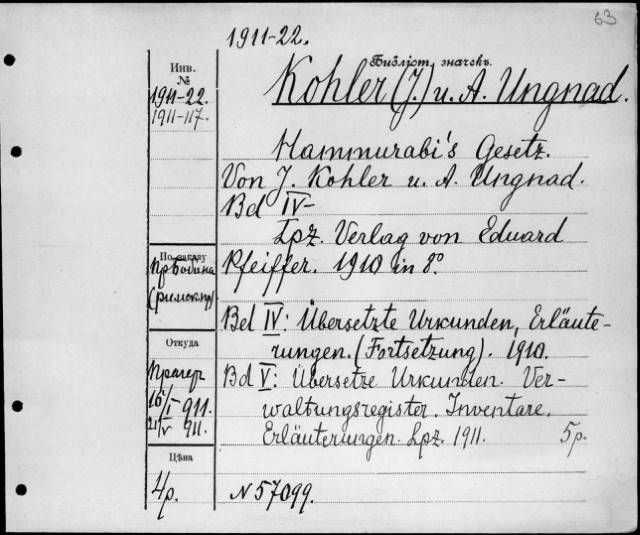 63
1911-22.
Библіот. значекъ.
Инв.
№
1911-22.
1911-117.
Kohler (J.) u. A. Ungnad.
Hammurabi's Gesetz.
Von J. Kohler u. A. Ungnad.
Bd IV-
Lpz. Verlag von Eduard
Pfeiffer. 1910 in 8º
Bd IV: Übersetzte Urkunden, Erläute-
rungen. (Fortsetzung). 1910.
Bd V: Übersetze Urkunden. Ver-
waltungsregister. Inventare.
Erläuterungen. Lpz. 1911. 5р.
N 57099.
По заказу
Откуда
Прагер
16/I 911.
21/V 911.
Цѣна
4р.